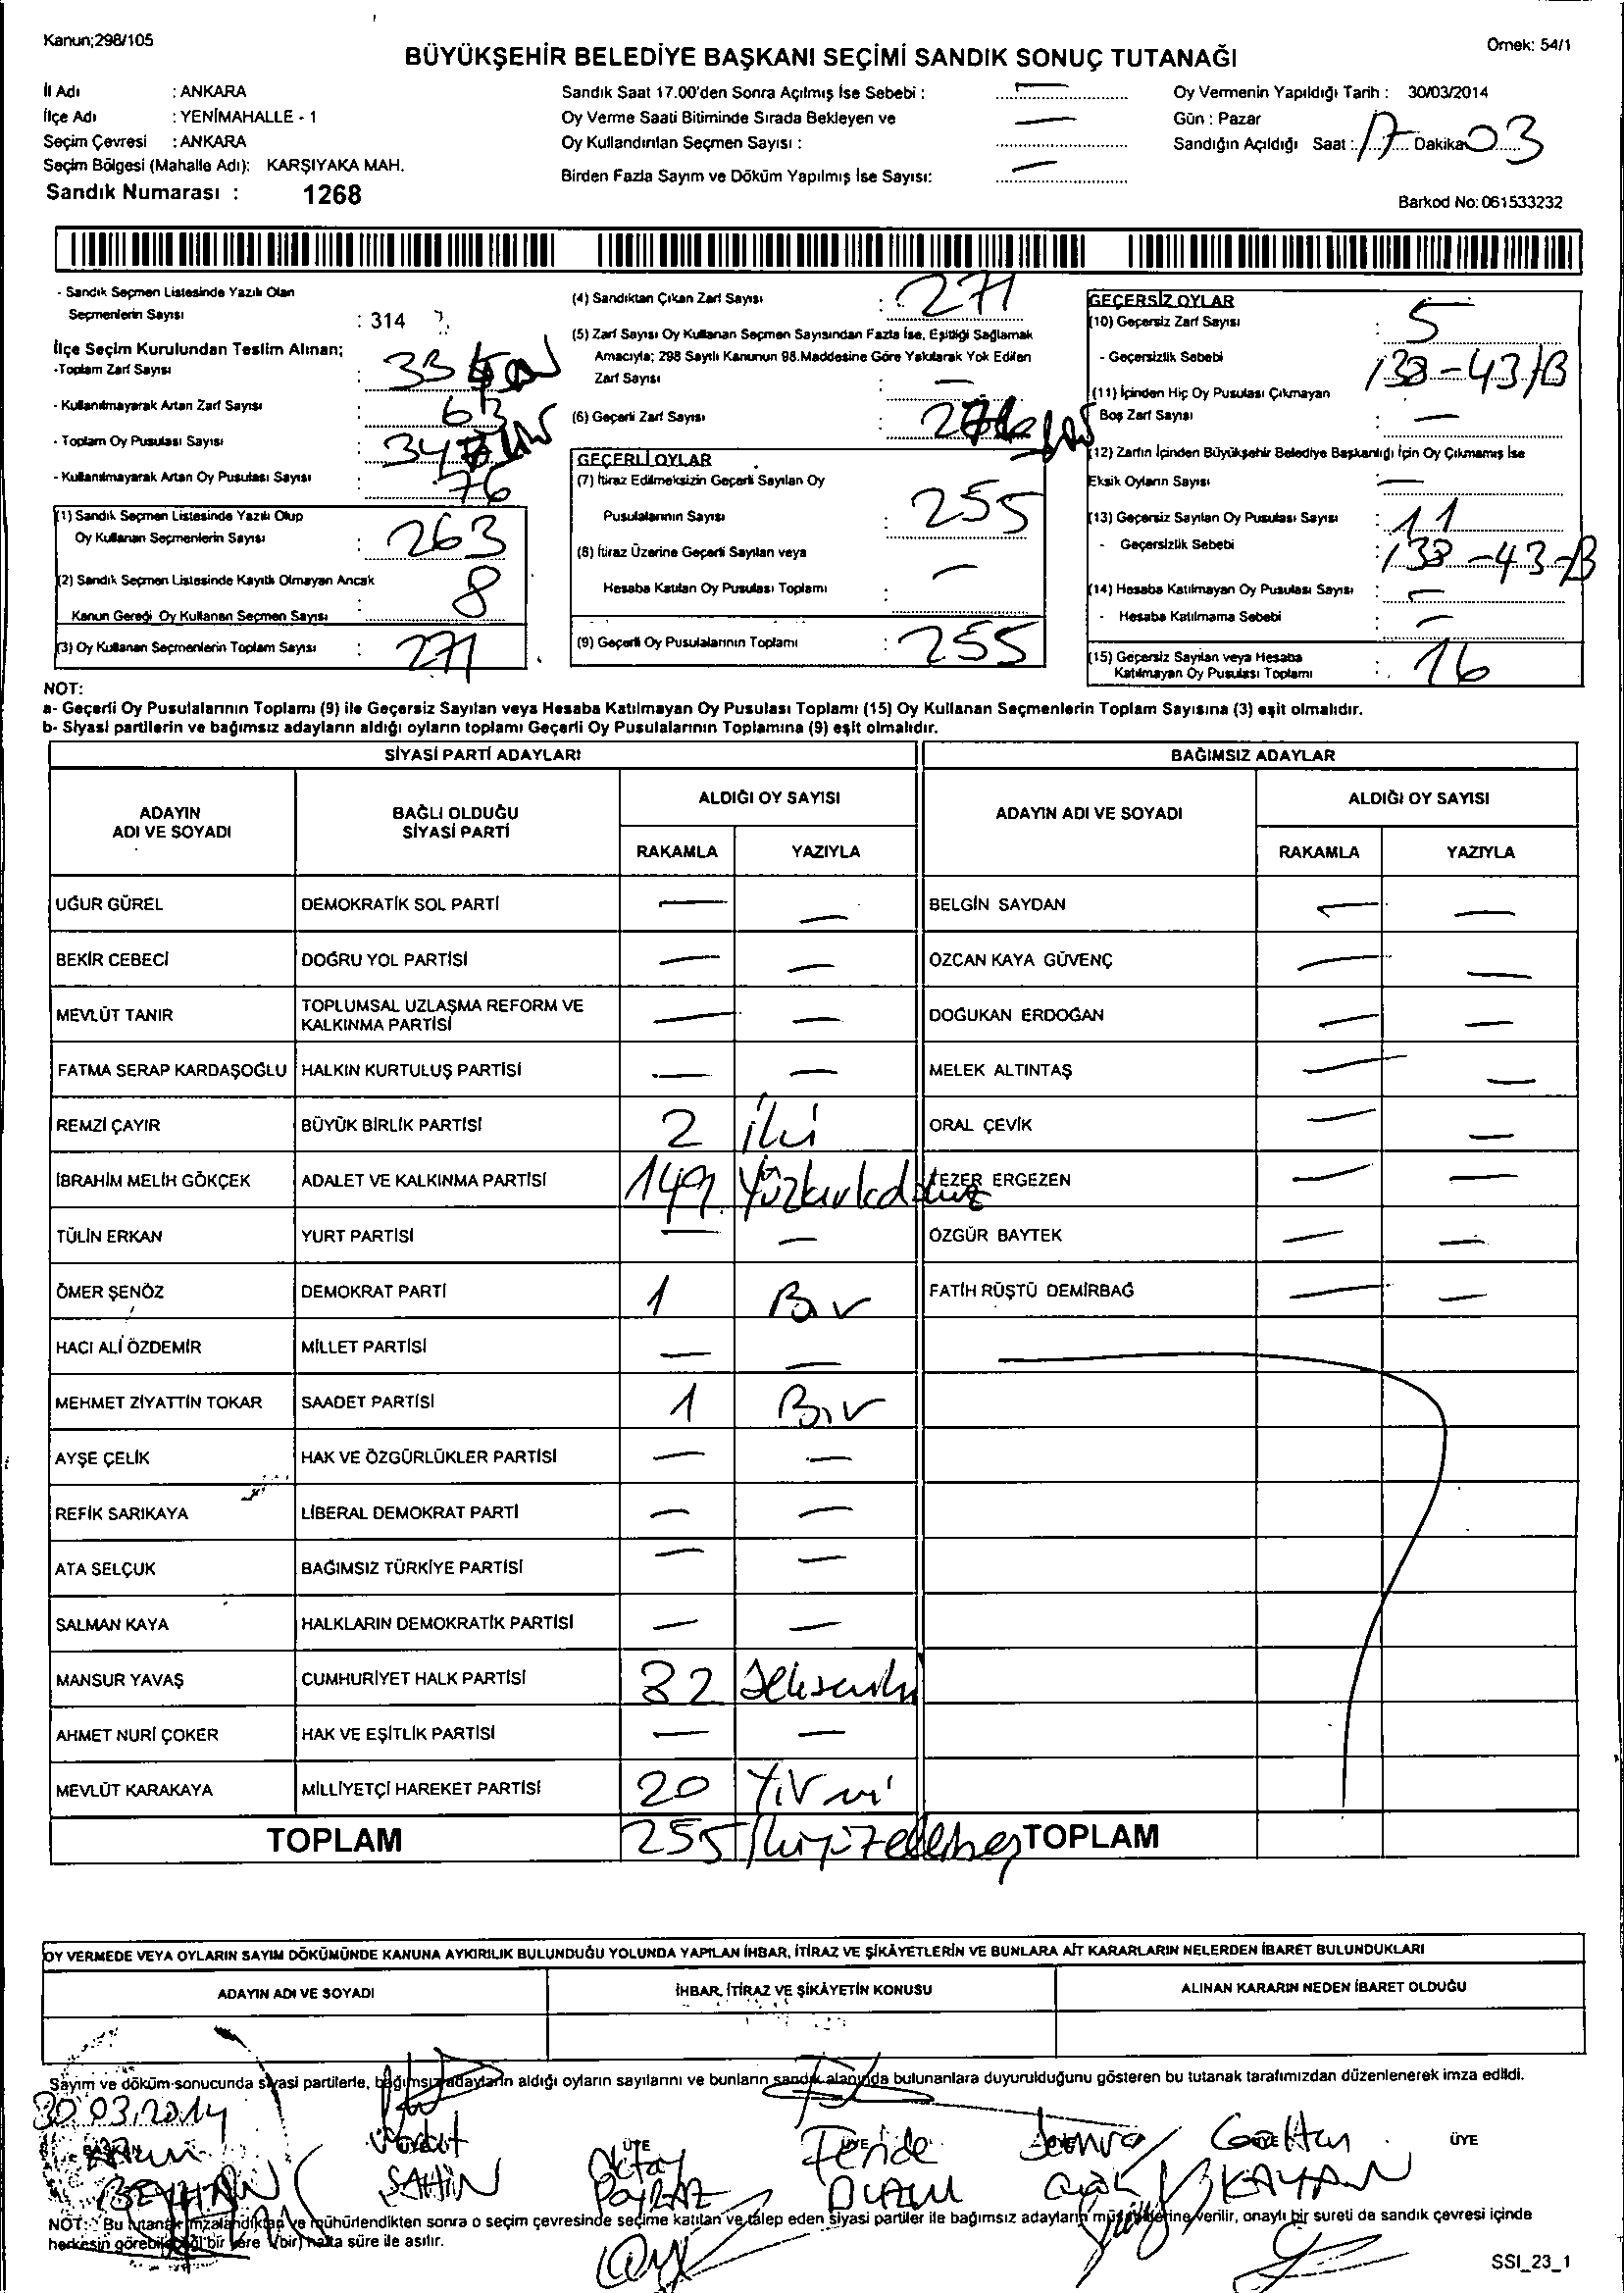 Kanun;298/105
Örnek: 54/1
BÜYÜKŞEHİR BELEDİYE BAŞKANI SEÇİMİ SANDIK SONUÇ TUTANAĞI
İl Adı : ANKARA
İlçe Adı : YENİMAHALLE - 1
Seçim Çevresi : ANKARA
Seçim Bölgesi (Mahalle Adı): KARŞIYAKA MAH.
Sandık Numarası : 1268
Sandık Saat 17.00'den Sonra Açılmış İse Sebebi : —
Oy Verme Saati Bitiminde Sırada Bekleyen ve —
Oy Kullandırılan Seçmen Sayısı :
Birden Fazla Sayım ve Döküm Yapılmış İse Sayısı: —
Oy Vermenin Yapıldığı Tarih : 30/03/2014
Gün : Pazar
Sandığın Açıldığı Saat : 17 Dakika 03
Barkod No: 061533232
- Sandık Seçmen Listesinde Yazılı Olan
Seçmenlerin Sayısı : 314
İlçe Seçim Kurulundan Teslim Alınan;
-Toplam Zarf Sayısı :
- Kullanılmayarak Artan Zarf Sayısı :
- Toplam Oy Pusulası Sayısı :
- Kullanılmayarak Artan Oy Pusulası Sayısı : 76
(1) Sandık Seçmen Listesinde Yazılı Olup
Oy Kullanan Seçmenlerin Sayısı : 263
(2) Sandık Seçmen Listesinde Kayıtlı Olmayan Ancak
Kanun Gereği Oy Kullanan Seçmen Sayısı : 8
(3) Oy Kullanan Seçmenlerin Toplam Sayısı : 271
(4) Sandıktan Çıkan Zarf Sayısı : 271
(5) Zarf Sayısı Oy Kullanan Seçmen Sayısından Fazla İse, Eşitliği Sağlamak
Amacıyla; 298 Sayılı Kanunun 98.Maddesine Göre Yakılarak Yok Edilen
Zarf Sayısı : —
(6) Geçerli Zarf Sayısı :
GEÇERLİ OYLAR
(7) İtiraz Edilmeksizin Geçerli Sayılan Oy
Pusulalarının Sayısı : 255
(8) İtiraz Üzerine Geçerli Sayılan veya
Hesaba Katılan Oy Pusulası Toplamı : —
(9) Geçerli Oy Pusulalarının Toplamı : 255
GEÇERSİZ OYLAR
(10) Geçersiz Zarf Sayısı : 5
- Geçersizlik Sebebi : 138-43/B
(11) İçinden Hiç Oy Pusulası Çıkmayan
Boş Zarf Sayısı : —
(12) Zarfın İçinden Büyükşehir Belediye Başkanlığı İçin Oy Çıkmamış İse
Eksik Oyların Sayısı : —
(13) Geçersiz Sayılan Oy Pusulası Sayısı : 11
- Geçersizlik Sebebi : 138-43-B
(14) Hesaba Katılmayan Oy Pusulası Sayısı : —
- Hesaba Katılmama Sebebi : —
(15) Geçersiz Sayılan veya Hesaba
Katılmayan Oy Pusulası Toplamı : 16
NOT:
a- Geçerli Oy Pusulalarının Toplamı (9) ile Geçersiz Sayılan veya Hesaba Katılmayan Oy Pusulası Toplamı (15) Oy Kullanan Seçmenlerin Toplam Sayısına (3) eşit olmalıdır.
b- Siyasi partilerin ve bağımsız adayların aldığı oyların toplamı Geçerli Oy Pusulalarının Toplamına (9) eşit olmalıdır.
SİYASİ PARTİ ADAYLARI
BAĞIMSIZ ADAYLAR
ADAYIN
ADI VE SOYADI
BAĞLI OLDUĞU
SİYASİ PARTİ
ALDIĞI OY SAYISI
ADAYIN ADI VE SOYADI
ALDIĞI OY SAYISI
RAKAMLA YAZIYLA RAKAMLA YAZIYLA
UĞUR GÜREL DEMOKRATİK SOL PARTİ — — BELGİN SAYDAN — —
BEKİR CEBECİ DOĞRU YOL PARTİSİ — — ÖZCAN KAYA GÜVENÇ — —
MEVLÜT TANIR TOPLUMSAL UZLAŞMA REFORM VE
KALKINMA PARTİSİ — — DOĞUKAN ERDOĞAN — —
FATMA SERAP KARDAŞOĞLU HALKIN KURTULUŞ PARTİSİ — — MELEK ALTINTAŞ — —
REMZİ ÇAYIR BÜYÜK BİRLİK PARTİSİ 2 iki ORAL ÇEVİK — —
İBRAHİM MELİH GÖKÇEK ADALET VE KALKINMA PARTİSİ 149 Yüzkırkdokuz TEZER ERGEZEN — —
TÜLİN ERKAN YURT PARTİSİ — — ÖZGÜR BAYTEK — —
ÖMER ŞENÖZ DEMOKRAT PARTİ 1 Bir FATİH RÜŞTÜ DEMİRBAĞ — —
HACI ALİ ÖZDEMİR MİLLET PARTİSİ — —
MEHMET ZİYATTİN TOKAR SAADET PARTİSİ 1 Bir
AYŞE ÇELİK HAK VE ÖZGÜRLÜKLER PARTİSİ — —
REFİK SARIKAYA LİBERAL DEMOKRAT PARTİ — —
ATA SELÇUK BAĞIMSIZ TÜRKİYE PARTİSİ — —
SALMAN KAYA HALKLARIN DEMOKRATİK PARTİSİ — —
MANSUR YAVAŞ CUMHURİYET HALK PARTİSİ 82 Sekseniki
AHMET NURİ ÇOKER HAK VE EŞİTLİK PARTİSİ — —
MEVLÜT KARAKAYA MİLLİYETÇİ HAREKET PARTİSİ 20 Yirmi
TOPLAM 255 ikiyüzellibeş TOPLAM
OY VERMEDE VEYA OYLARIN SAYIM DÖKÜMÜNDE KANUNA AYKIRILIK BULUNDUĞU YOLUNDA YAPILAN İHBAR, İTİRAZ VE ŞİKÂYETLERİN VE BUNLARA AİT KARARLARIN NELERDEN İBARET BULUNDUKLARI
ADAYIN ADI VE SOYADI İHBAR, İTİRAZ VE ŞİKÂYETİN KONUSU ALINAN KARARIN NEDEN İBARET OLDUĞU
Sayım ve döküm sonucunda siyasi partilerle, bağımsız adayların aldığı oyların sayılarını ve bunların sandık alanında bulunanlara duyurulduğunu gösteren bu tutanak tarafımızdan düzenlenerek imza edildi.
30.03.2014
BAŞKAN ÜYE ÜYE ÜYE
BEYHAN ŞAHİN
Oktay POYRAZ
Feride
KAYAN
NOT: Bu tutanak imzalandıktan ve mühürlendikten sonra o seçim çevresinde seçime katılan ve talep eden siyasi partiler ile bağımsız adayların müşahitlerine verilir, onaylı bir sureti de sandık çevresi içinde
herkesin görebileceği bir yere 1(bir) hafta süre ile asılır.
SSI_23_1